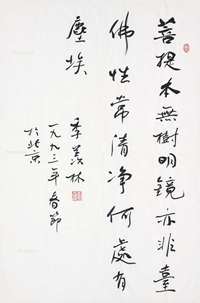 菩提本無樹明鏡亦非臺
佛性常清净何處有
塵埃
季羨林
一九九三年春節
於北京